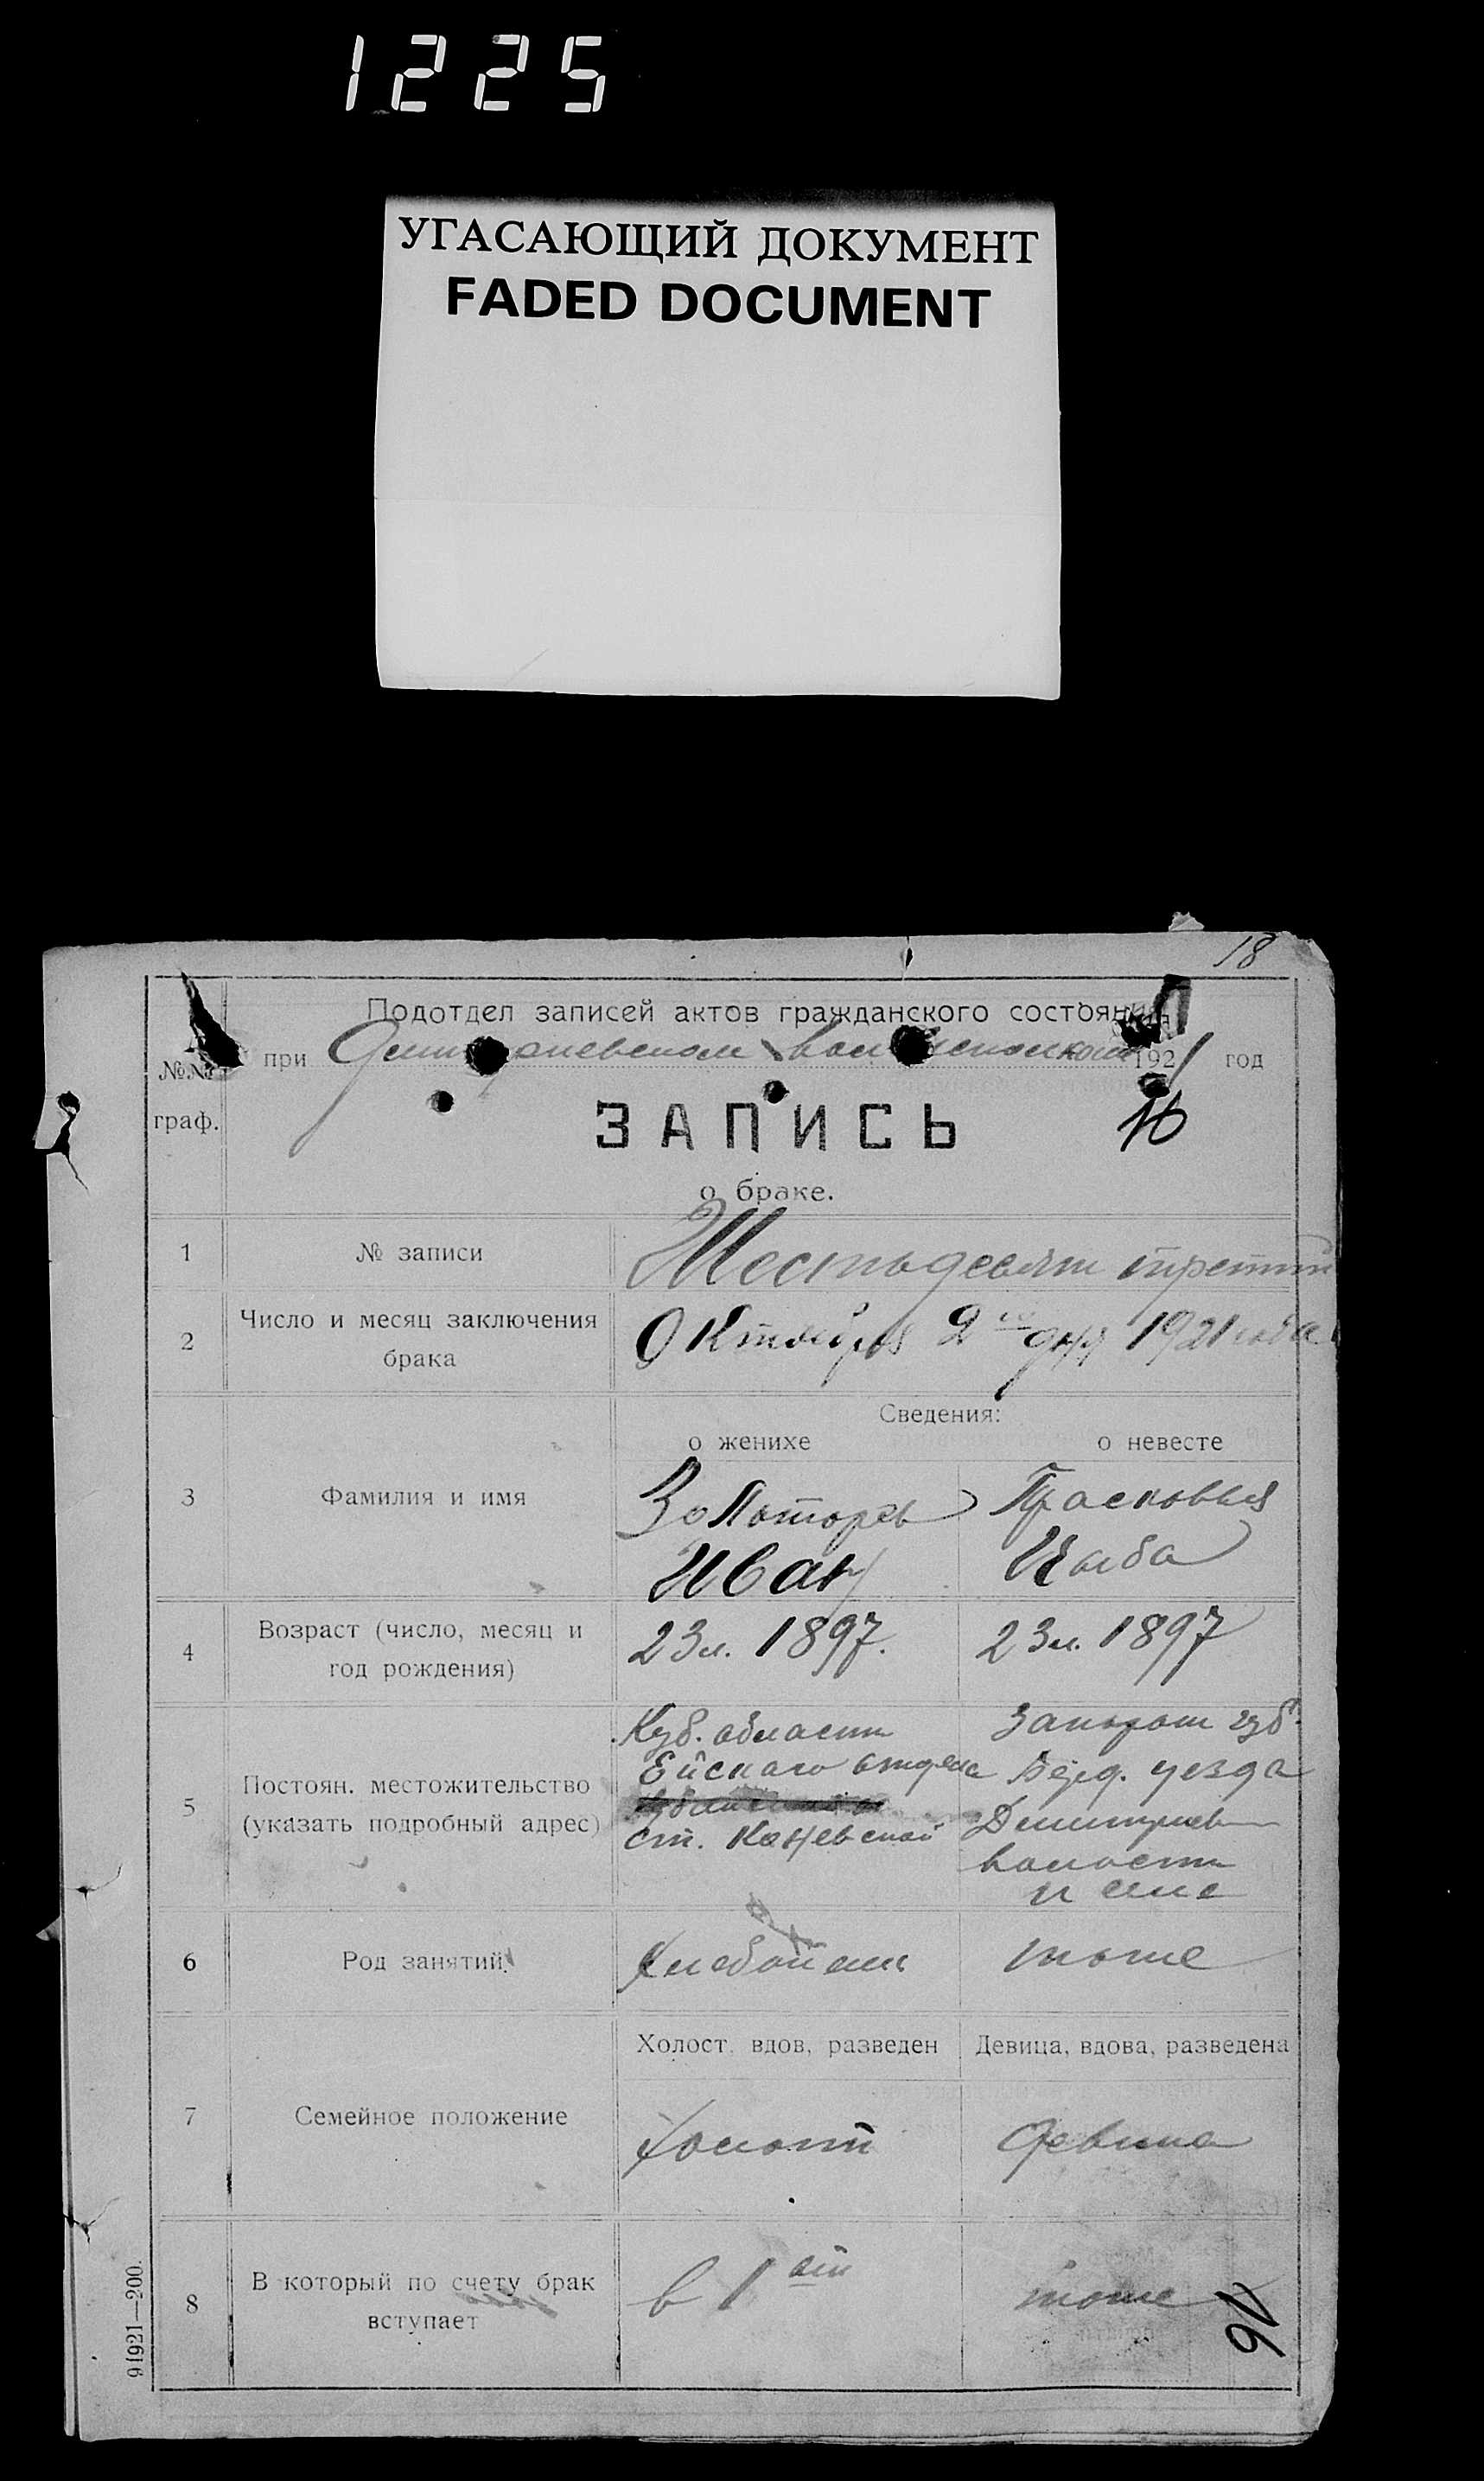 1225
УГАСАЮЩИЙ ДОКУМЕНТ
FADED DOCUMENT
18
Подотдел записей актов гражданского состояния
при 1921 год
№№
граф.
ЗАПИСЬ
о браке.
1 № записи Шестьдесят третий
2 Число и месяц заключения
брака
Октября 2го дня 1921 года
Сведения:
о женихе о невесте
3 Фамилия и имя
Золоторев Прасковья
Иван Цыба
4 Возраст (число, месяц и
год рождения)
23 л. 1897. 23 л. 1897
5 Постоян. местожительство
(указать подробный адрес)
Куб. области
Ейскаго отдела
ст. Каневской
Запорож губ.
Берд. уезда
Дмитриев
волости
и села
6 Род занятий. Хлебопаш тоже
Холост, вдов, разведен Девица, вдова, разведена
7 Семейное положение
холост девица
8 В который по счету брак
вступает
в 1ый тоже
91921—200.